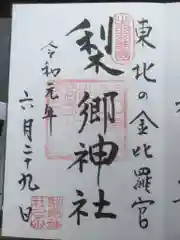 東北の金比羅宮
梨郷神社
令和元年
六月二十九日